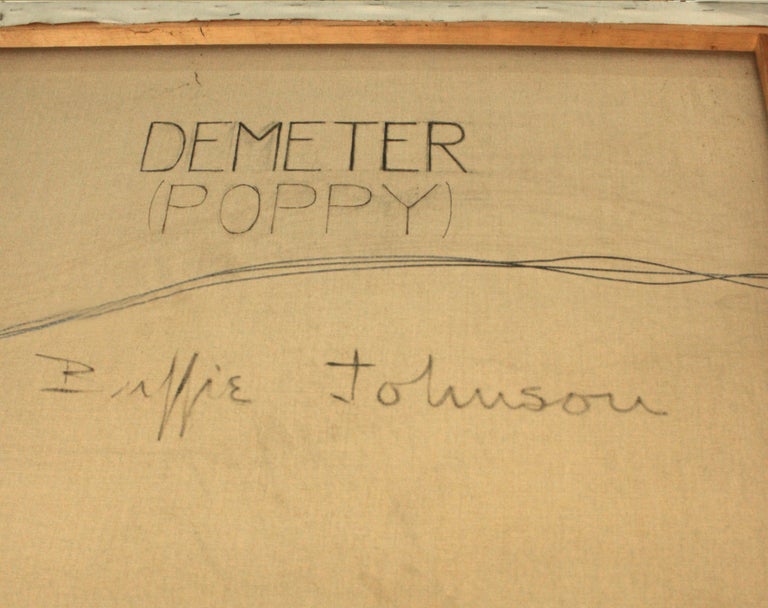 DEMETER
(POPPY)
Buffie Johnson